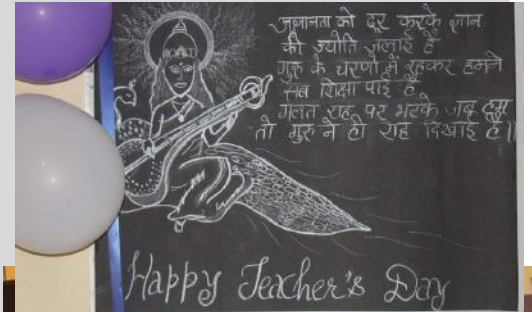 अज्ञानता को दूर करके ज्ञान
की ज्योति जलाई है
गुरु के चरणों में रहकर हमने
सब शिक्षा पाई है
गलत राह पर भटके जब हम
तो गुरु ने ही राह दिखाई है।।
Happy Teacher's Day